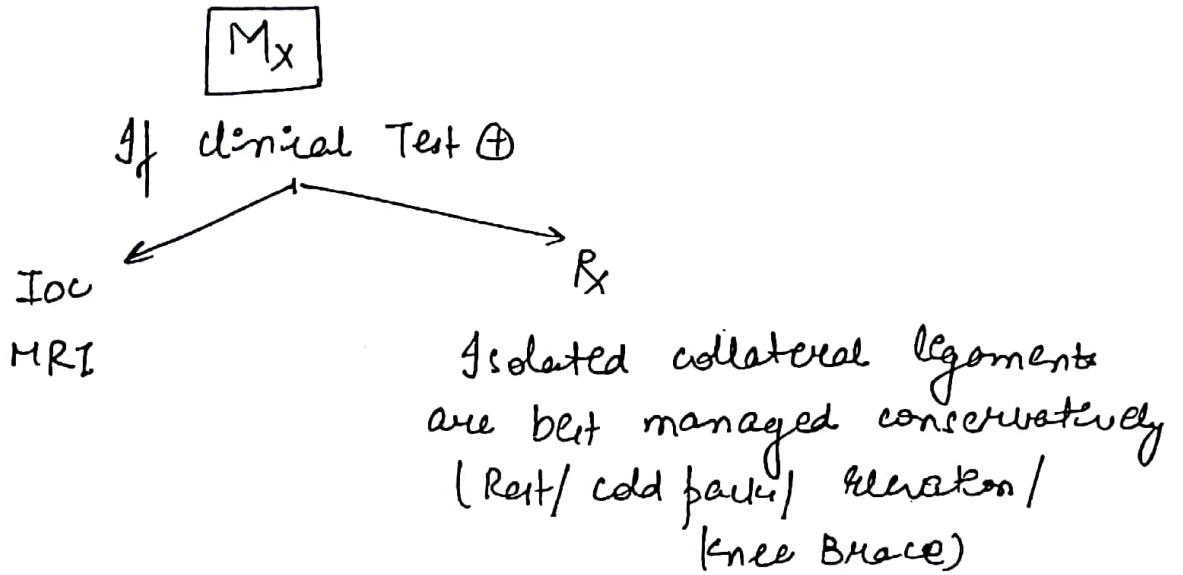 Mx
If clinical Test ⊕
Ioc
MRI
Rx
Isolated collateral legaments
are best managed conservatively
(Rest/ cold packs/ elevation/
Knee Brace)